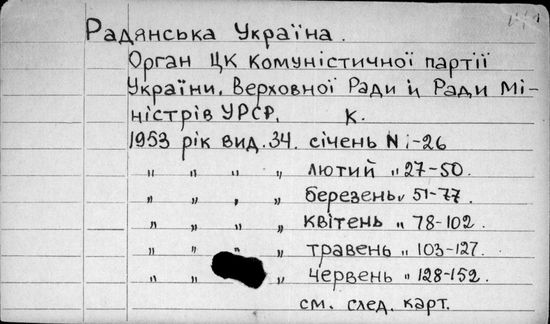 Радянська Україна.
Орган ЦК Комуністичної партії
України, Верховної Ради й Ради Мі-
ністрів УРСР. К.
1953 рік вид. 34. січень N 1-26
" " " " лютий " 27-50.
" " " " березень " 51-77.
" " " " квітень " 78-102.
" " " " травень " 103-127.
" " " червень " 128-152.
см. след. карт.